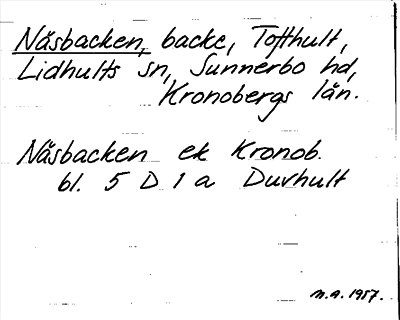 Näsbacken, backe, Tofthult,
Lidhults sn, Sunnerbo hd,
Kronobergs län.
Näsbacken ek Kronob.
bl. 5 D 1 a Duvhult
M.A. 1957.